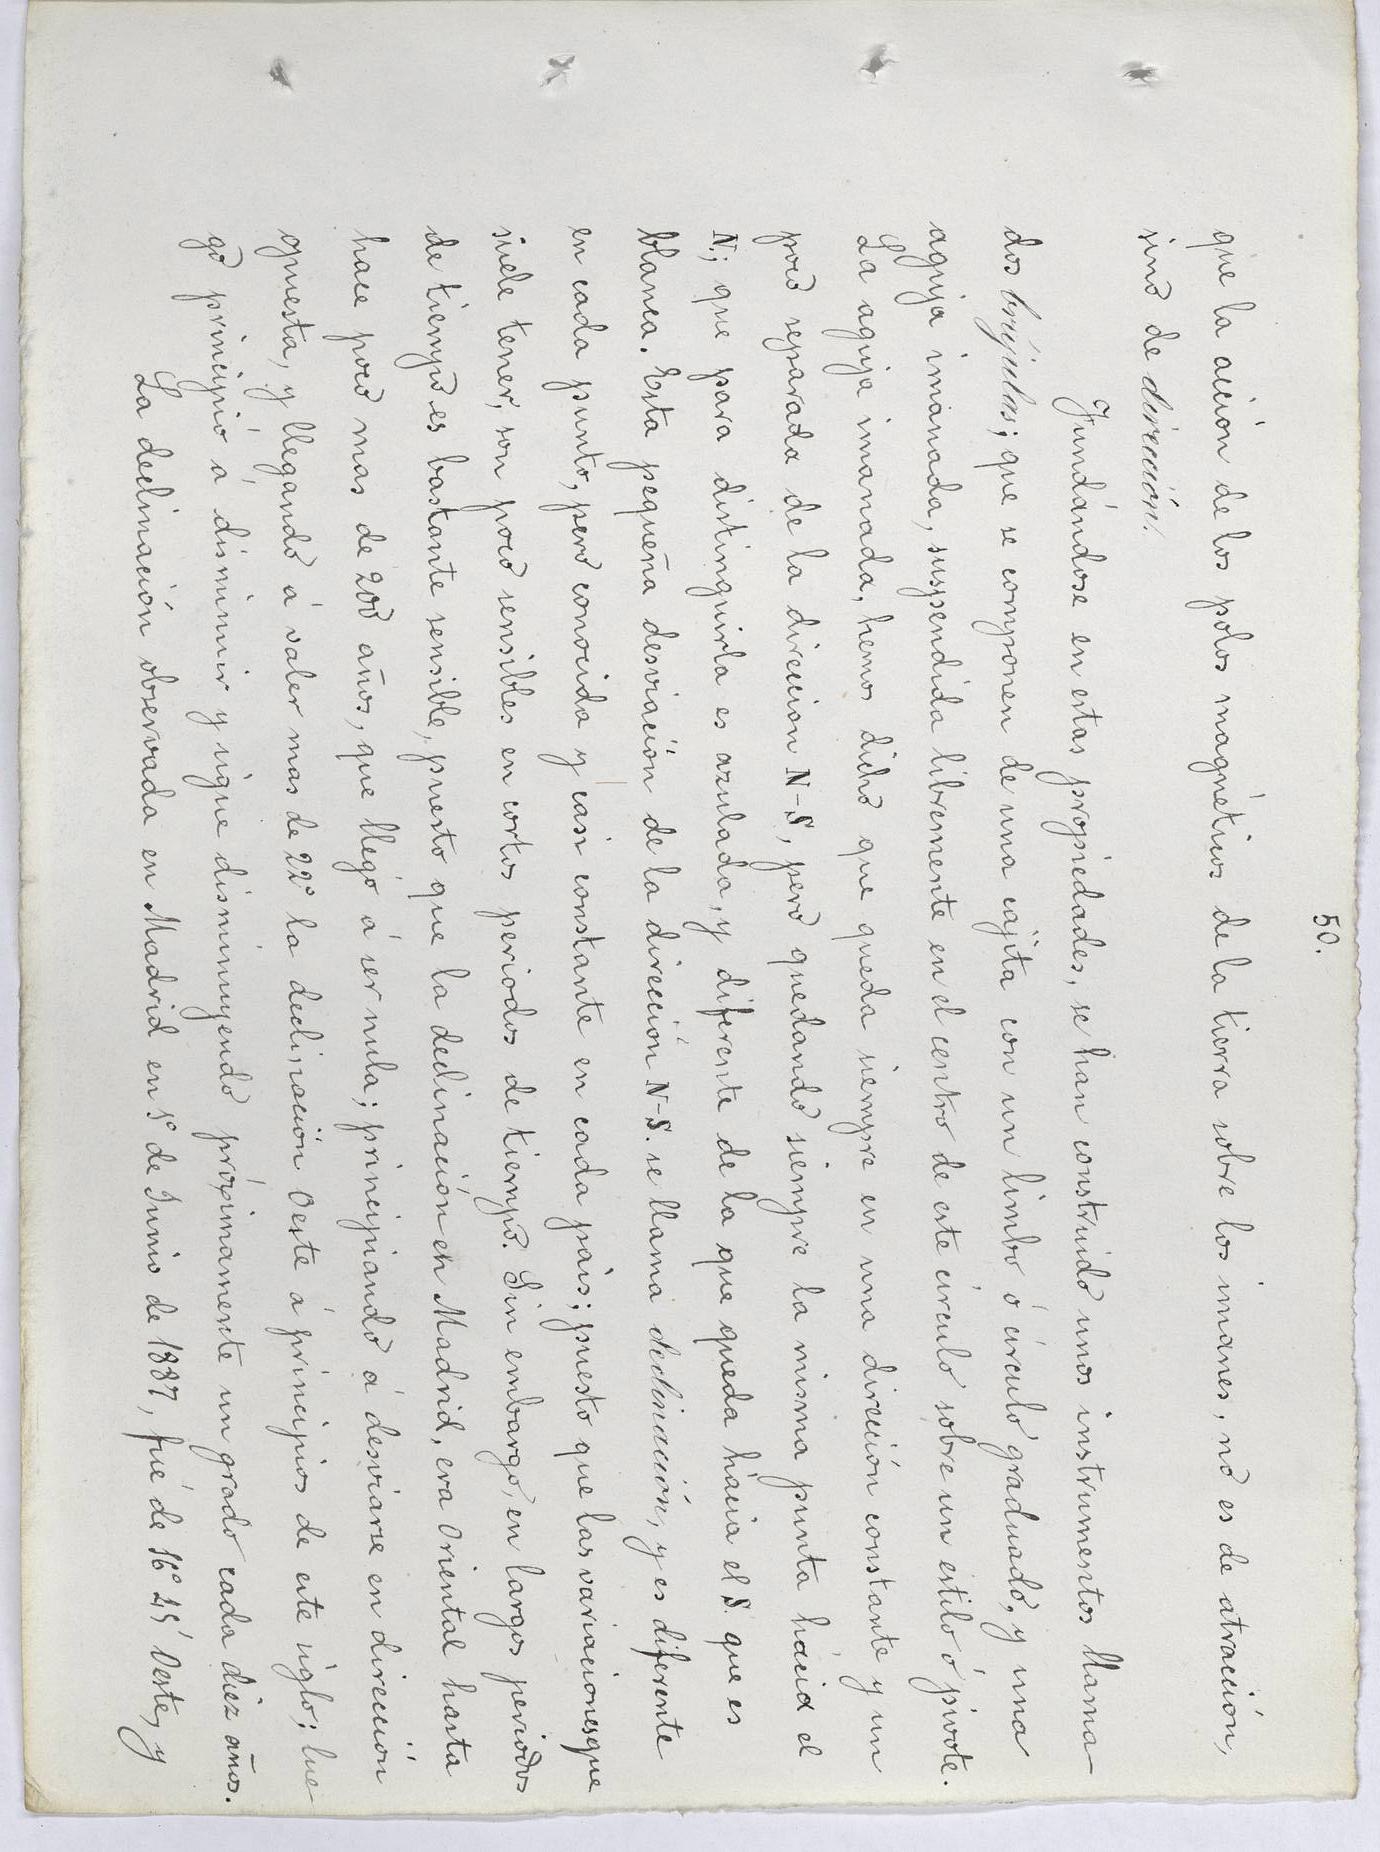 50.
que la acción de los polos magnéticos de la tierra sobre los imanes, no es de atracción,
sino de dirección.
Fundándose en estas propiedades, se han construido unos instrumentos llama-
dos brújulas; que se componen de una cajita con un limbo ó círculo graduado, y una
aguja imanada, suspendida libremente en el centro de este círculo sobre un estilo ó pivote.
La aguja imanada, hemos dicho que queda siempre en una dirección constante y un
poco separada de la direccion N-S, pero quedando siempre la misma punta hácia el
N; que para distinguirla es azulada, y diferente de la que queda hácia el S. que es
blanca. Esta pequeña desviación de la dirección N-S. se llama declinación, y es diferente
en cada punto, pero conocida y casi constante en cada pais; puesto que las variaciones que
suele tener, son poco sensibles en cortos periodos de tiempo. Sin embargo, en largos periodos
de tiempo es bastante sensible, puesto que la declinación en Madrid, era Oriental hasta
hace poco mas de 200 años, que llegó á ser nula; principiando á desviarse en dirección
opuesta, y llegando á valer mas de 22° la declinación Oeste á principios de este siglo; lue-
go principió á disminuir y sigue disminuyendo próximamente un grado cada diez años.
La declinación observada en Madrid en 1° de Junio de 1887, fué de 16° 25' Oeste, y